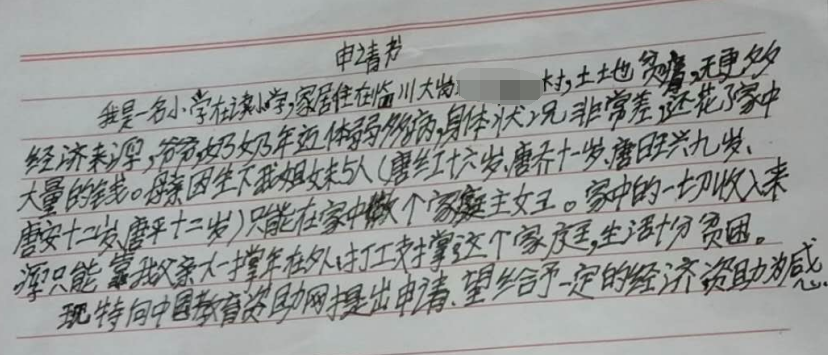 申请书
我是一名小学在读小学,家居住在临川大岗 村,土土地贫瘠,无更多
经济来源,爷爷,奶奶年迈体弱多病,身体状况非常差,还花了家中
大量的钱。母亲因生下我姐妹5人(唐红十六岁、唐乔十一岁、唐旺兴九岁、
唐安十二岁、唐平十二岁)只能在家中做个家庭主女王。家中的一切收入来
源只能靠我父亲大一撑年在外打工支撑这个家庭,生活十分贫困。
现特向中国教育资助网提出申请、望给予一定的经济资助为感